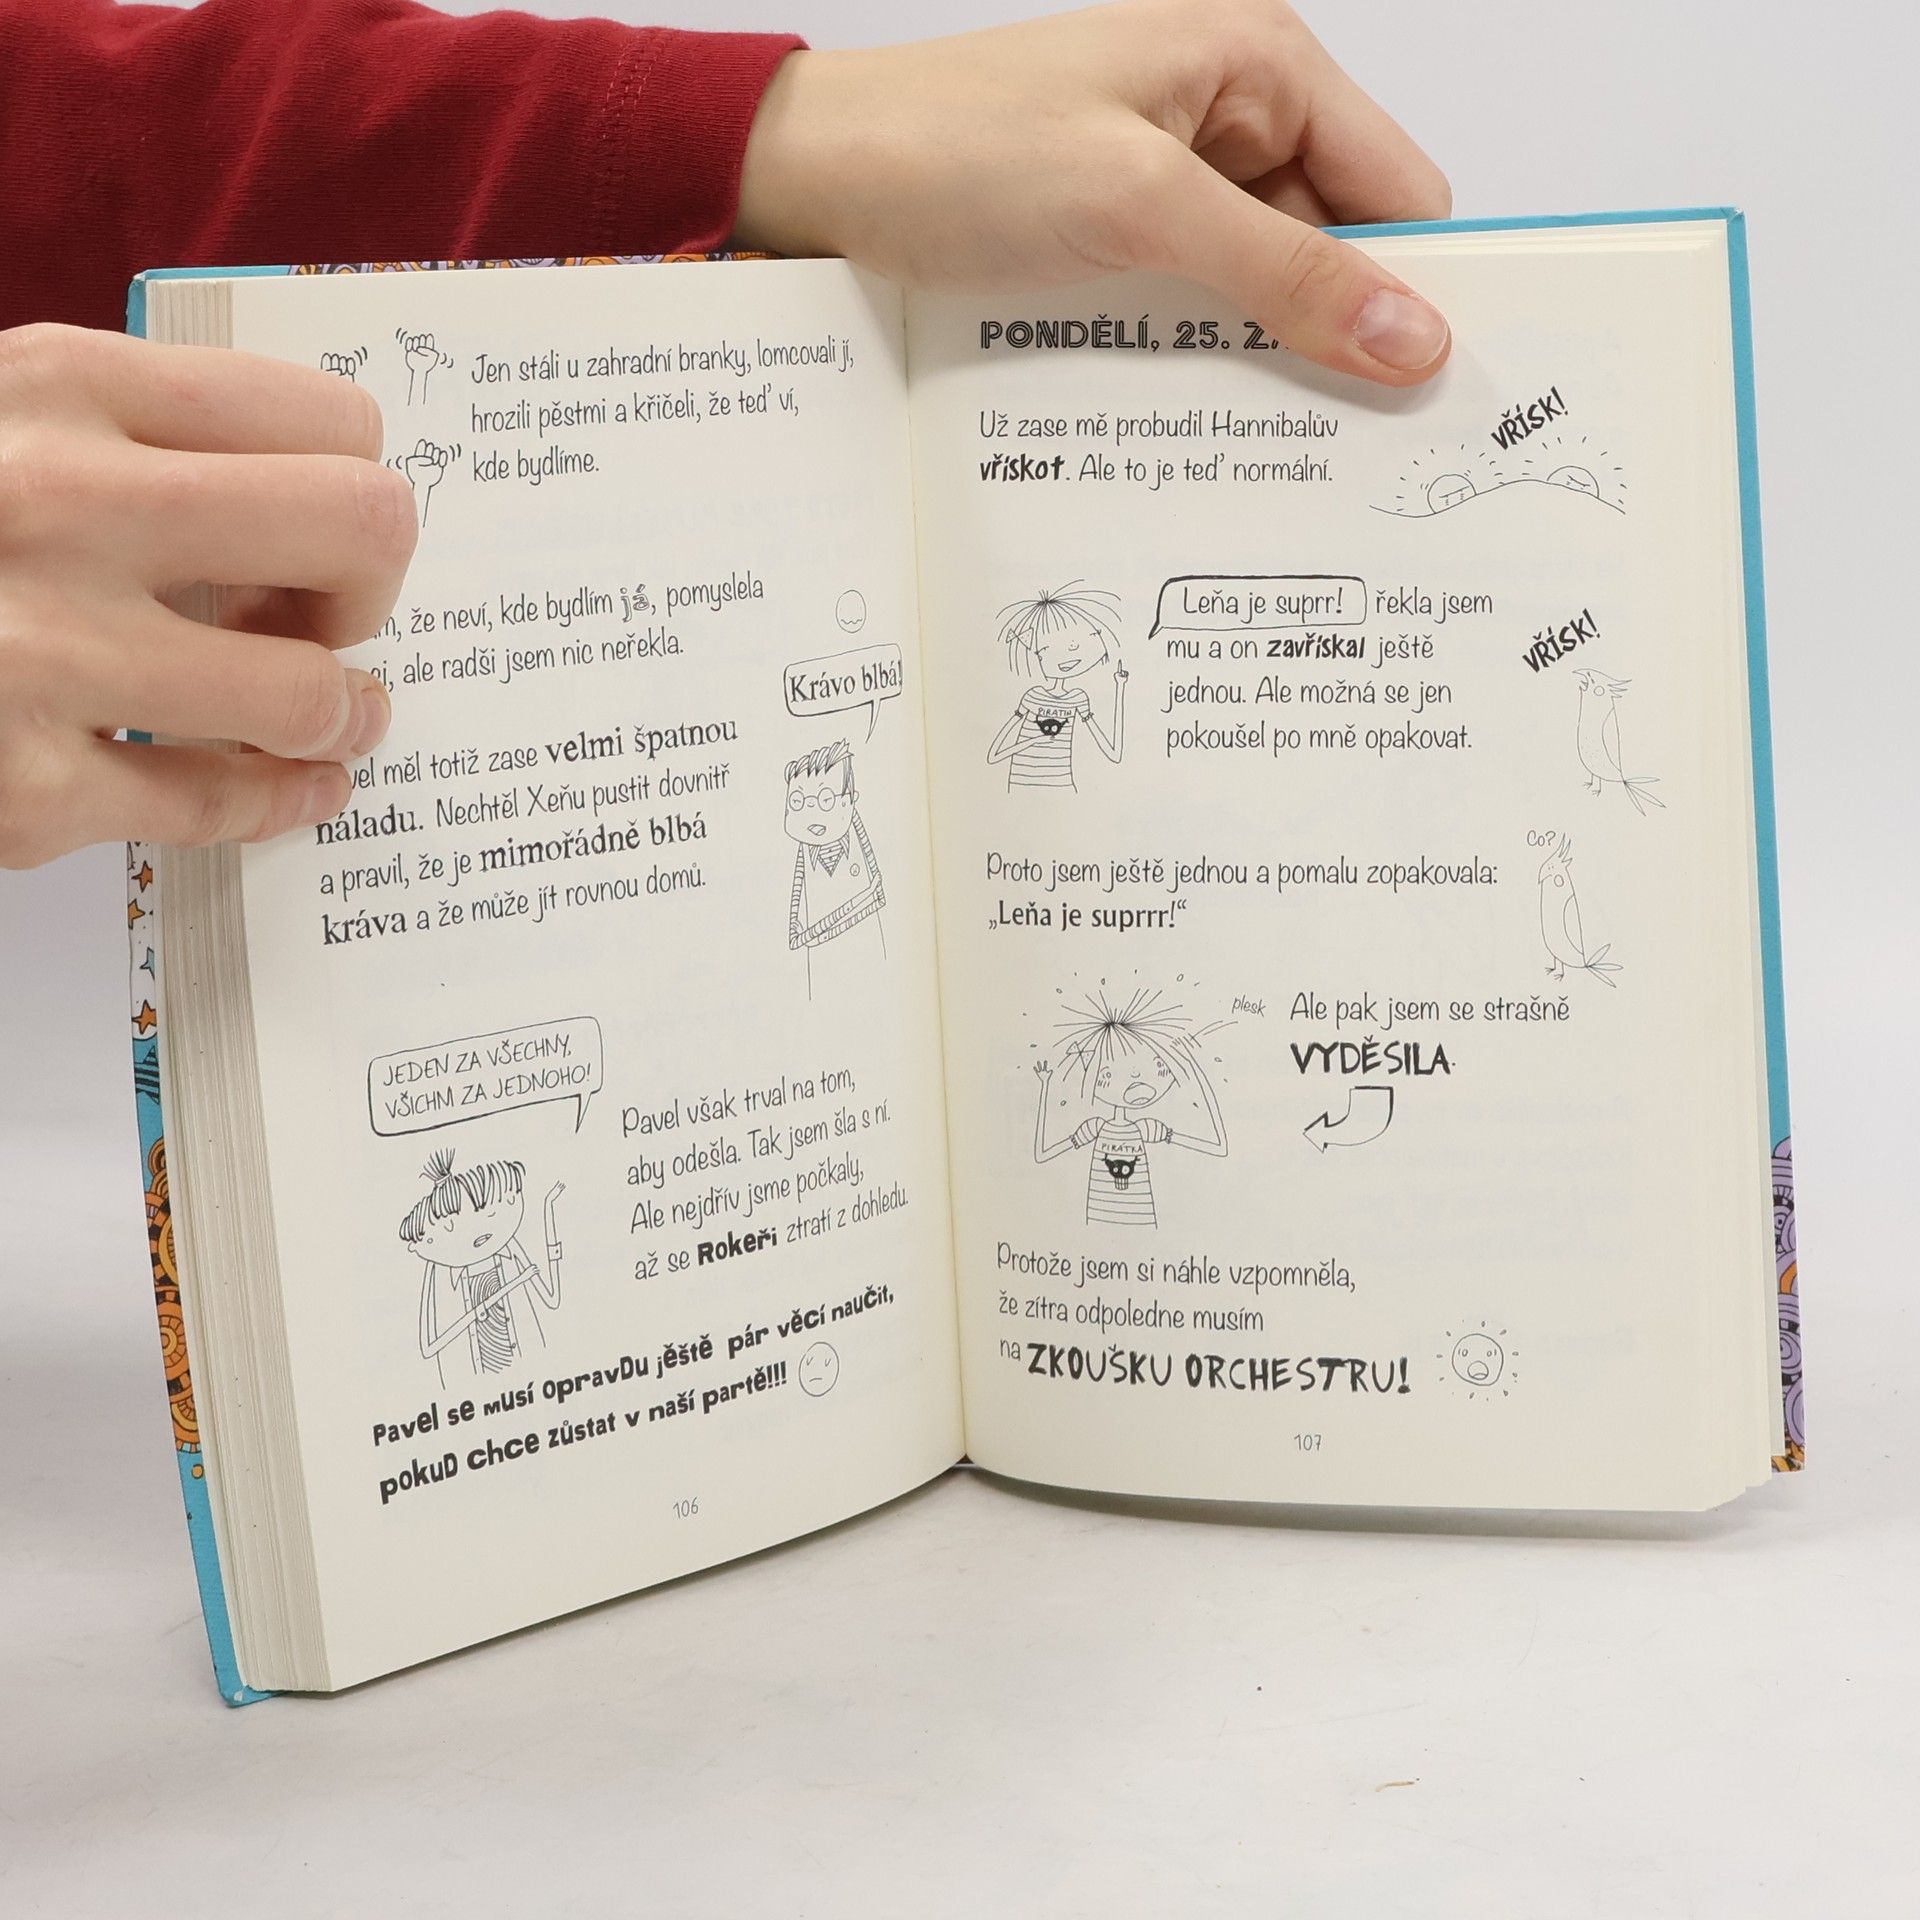 Jen stáli u zahradní branky, lomcovali jí,
hrozili pěstmi a křičeli, že teď ví,
kde bydlíme.
že neví, kde bydlím já, pomyslela
ale radši jsem nic neřekla.
Krávo blbá!
měl totiž zase velmi špatnou
náladu. Nechtěl Xeňu pustit dovnitř
a pravil, že je mimořádně blbá
kráva a že může jít rovnou domů.
JEDEN ZA VŠECHNY,
VŠICHNI ZA JEDNOHO!
Pavel však trval na tom,
aby odešla. Tak jsem šla s ní.
Ale nejdřív jsme počkaly,
až se Rokeři ztratí z dohledu.
Pavel se musí opravDu ještě pár věcí naučit,
pokuD chce zůstat v naší partě!!!
106
PONDĚLÍ, 25.
Už zase mě probudil Hannibalův
vřískot. Ale to je teď normální.
VŘÍSK!
Leňa je suprr! řekla jsem
mu a on zavřískal ještě
jednou. Ale možná se jen
pokoušel po mně opakovat.
VŘÍSK!
PIRÁTKA
Co?
Proto jsem ještě jednou a pomalu zopakovala:
„Leňa je suprrr!“
plesk
Ale pak jsem se strašně
VYDĚSILA.
PIRÁTKA
Protože jsem si náhle vzpomněla,
že zítra odpoledne musím
na ZKOUŠKU ORCHESTRU!
107